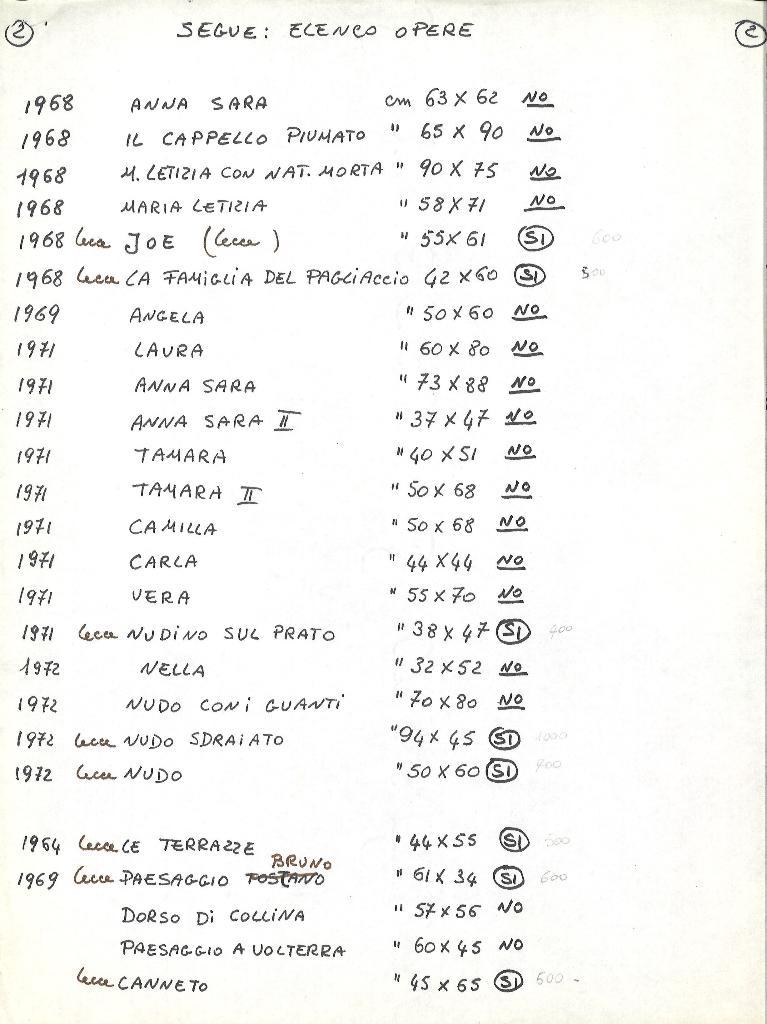 2 SEGUE: ELENCO OPERE 2
1968 ANNA SARA cm 63 X 62 NO
1968 IL CAPPELLO PIUMATO " 65 X 90 NO
1968 M. LETIZIA CON NAT. MORTA " 90 X 75 NO
1968 MARIA LETIZIA " 58 X 71 NO
1968 Lecce JOE (Lecce) " 55 X 61 SI 600
1968 Lecce LA FAMIGLIA DEL PAGLIACCIO 42 X 60 SI 500
1969 ANGELA " 50 X 60 NO
1971 LAURA " 60 X 80 NO
1971 ANNA SARA " 73 X 88 NO
1971 ANNA SARA II " 37 X 47 NO
1971 TAMARA " 40 X 51 NO
1971 TAMARA II " 50 X 68 NO
1971 CAMILLA " 50 X 68 NO
1971 CARLA " 44 X 44 NO
1971 VERA " 55 X 70 NO
1971 Lecce NUDINO SUL PRATO " 38 X 47 SI 400
1972 NELLA " 32 X 52 NO
1972 NUDO CON i GUANTi " 70 X 80 NO
1972 Lecce NUDO SDRAIATO " 94 X 45 SI 1000
1972 Lecce NUDO " 50 X 60 SI
1964 Lecce LE TERRAZZE " 44 X 55 SI 500
BRUNO
1969 Lecce PAESAGGIO TOSCANO " 61 X 34 SI 600
DORSO Di COLLINA " 57 X 56 NO
PAESAGGIO A VOLTERRA " 60 X 45 NO
Lecce CANNETO " 45 X 65 SI 500 -